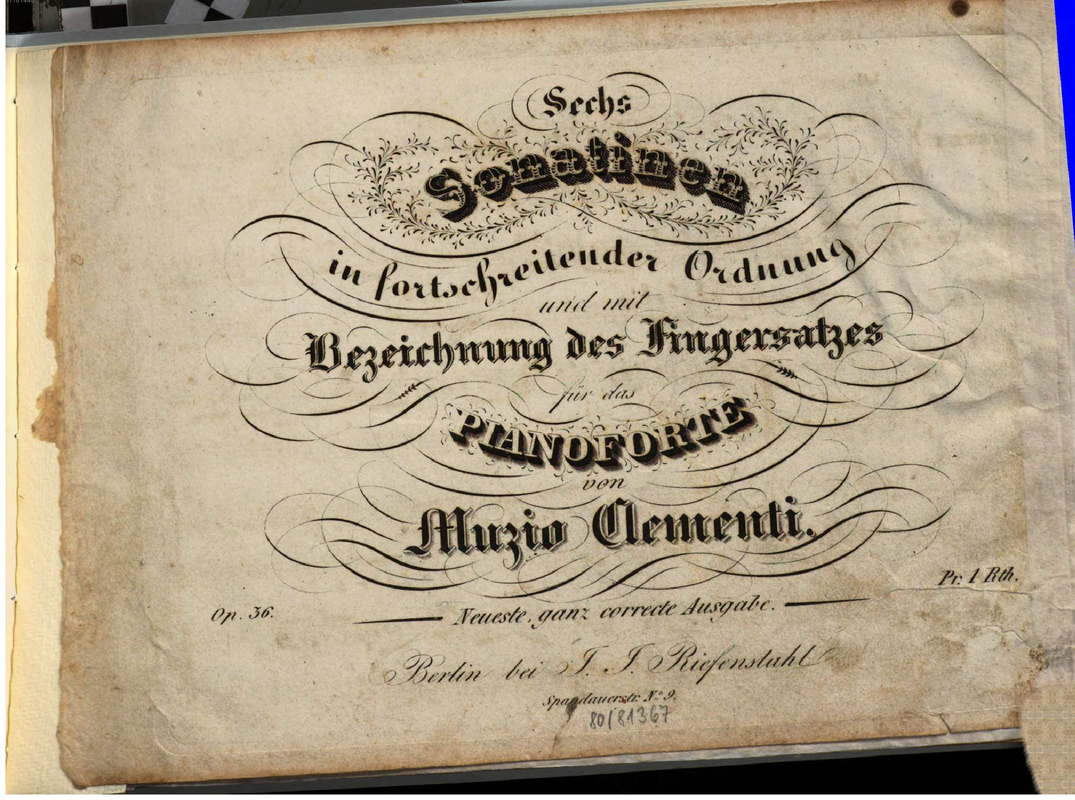 Sechs
Sonatinen
in fortschreitender Ordnung
und mit
Bezeichnung des Fingersatzes
für das
PIANOFORTE
von
Muzio Clementi.
Pr. 1 Rth.
Op. 36.
Neueste, ganz correcte Ausgabe.
Berlin bei J. J. Riefenstahl
Spandauerstr. No 9.
80/81367